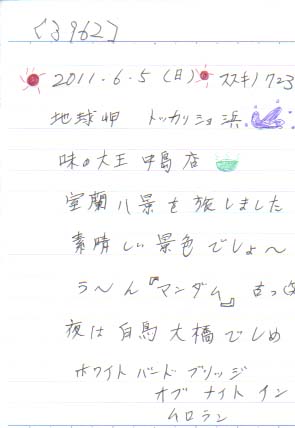 [3962]
2011.6.5(日) ススキノ723
地球岬 トッカリショ浜
味の大王 中島店
室蘭八景を旅しました
素晴しい景色でしょ〜
う〜ん『マンダム』古っ
夜は白鳥大橋でしめ
ホワイト バード ブリッジ
オブ ナイト イン
ムロラン